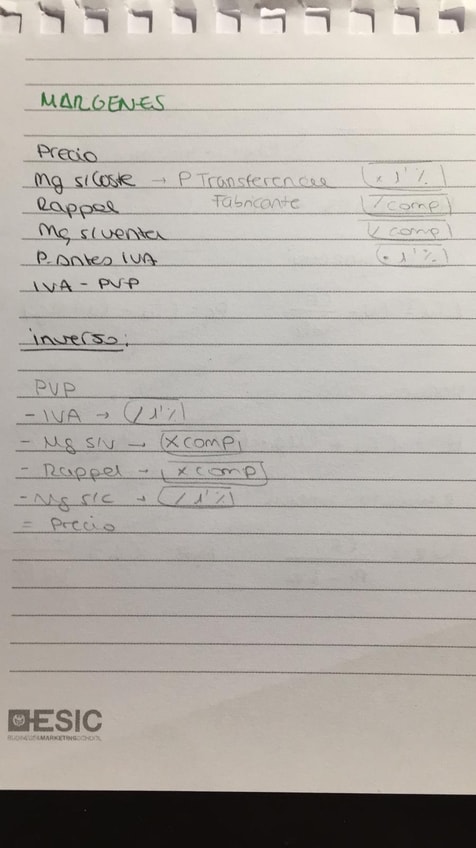 MARGENES
Precio
Mg s/Coste → P Transferencia x 1'%
Rappel Fabricante / comp
Mg s/venta / comp
P. antes IVA · 1'%
IVA - PVP
inverso:
PVP
- IVA → / 1'%
- Mg s/v → x comp
- Rappel → x comp
- Mg s/c → / 1'%
= Precio
ESIC
BUSINESS&MARKETINGSCHOOL